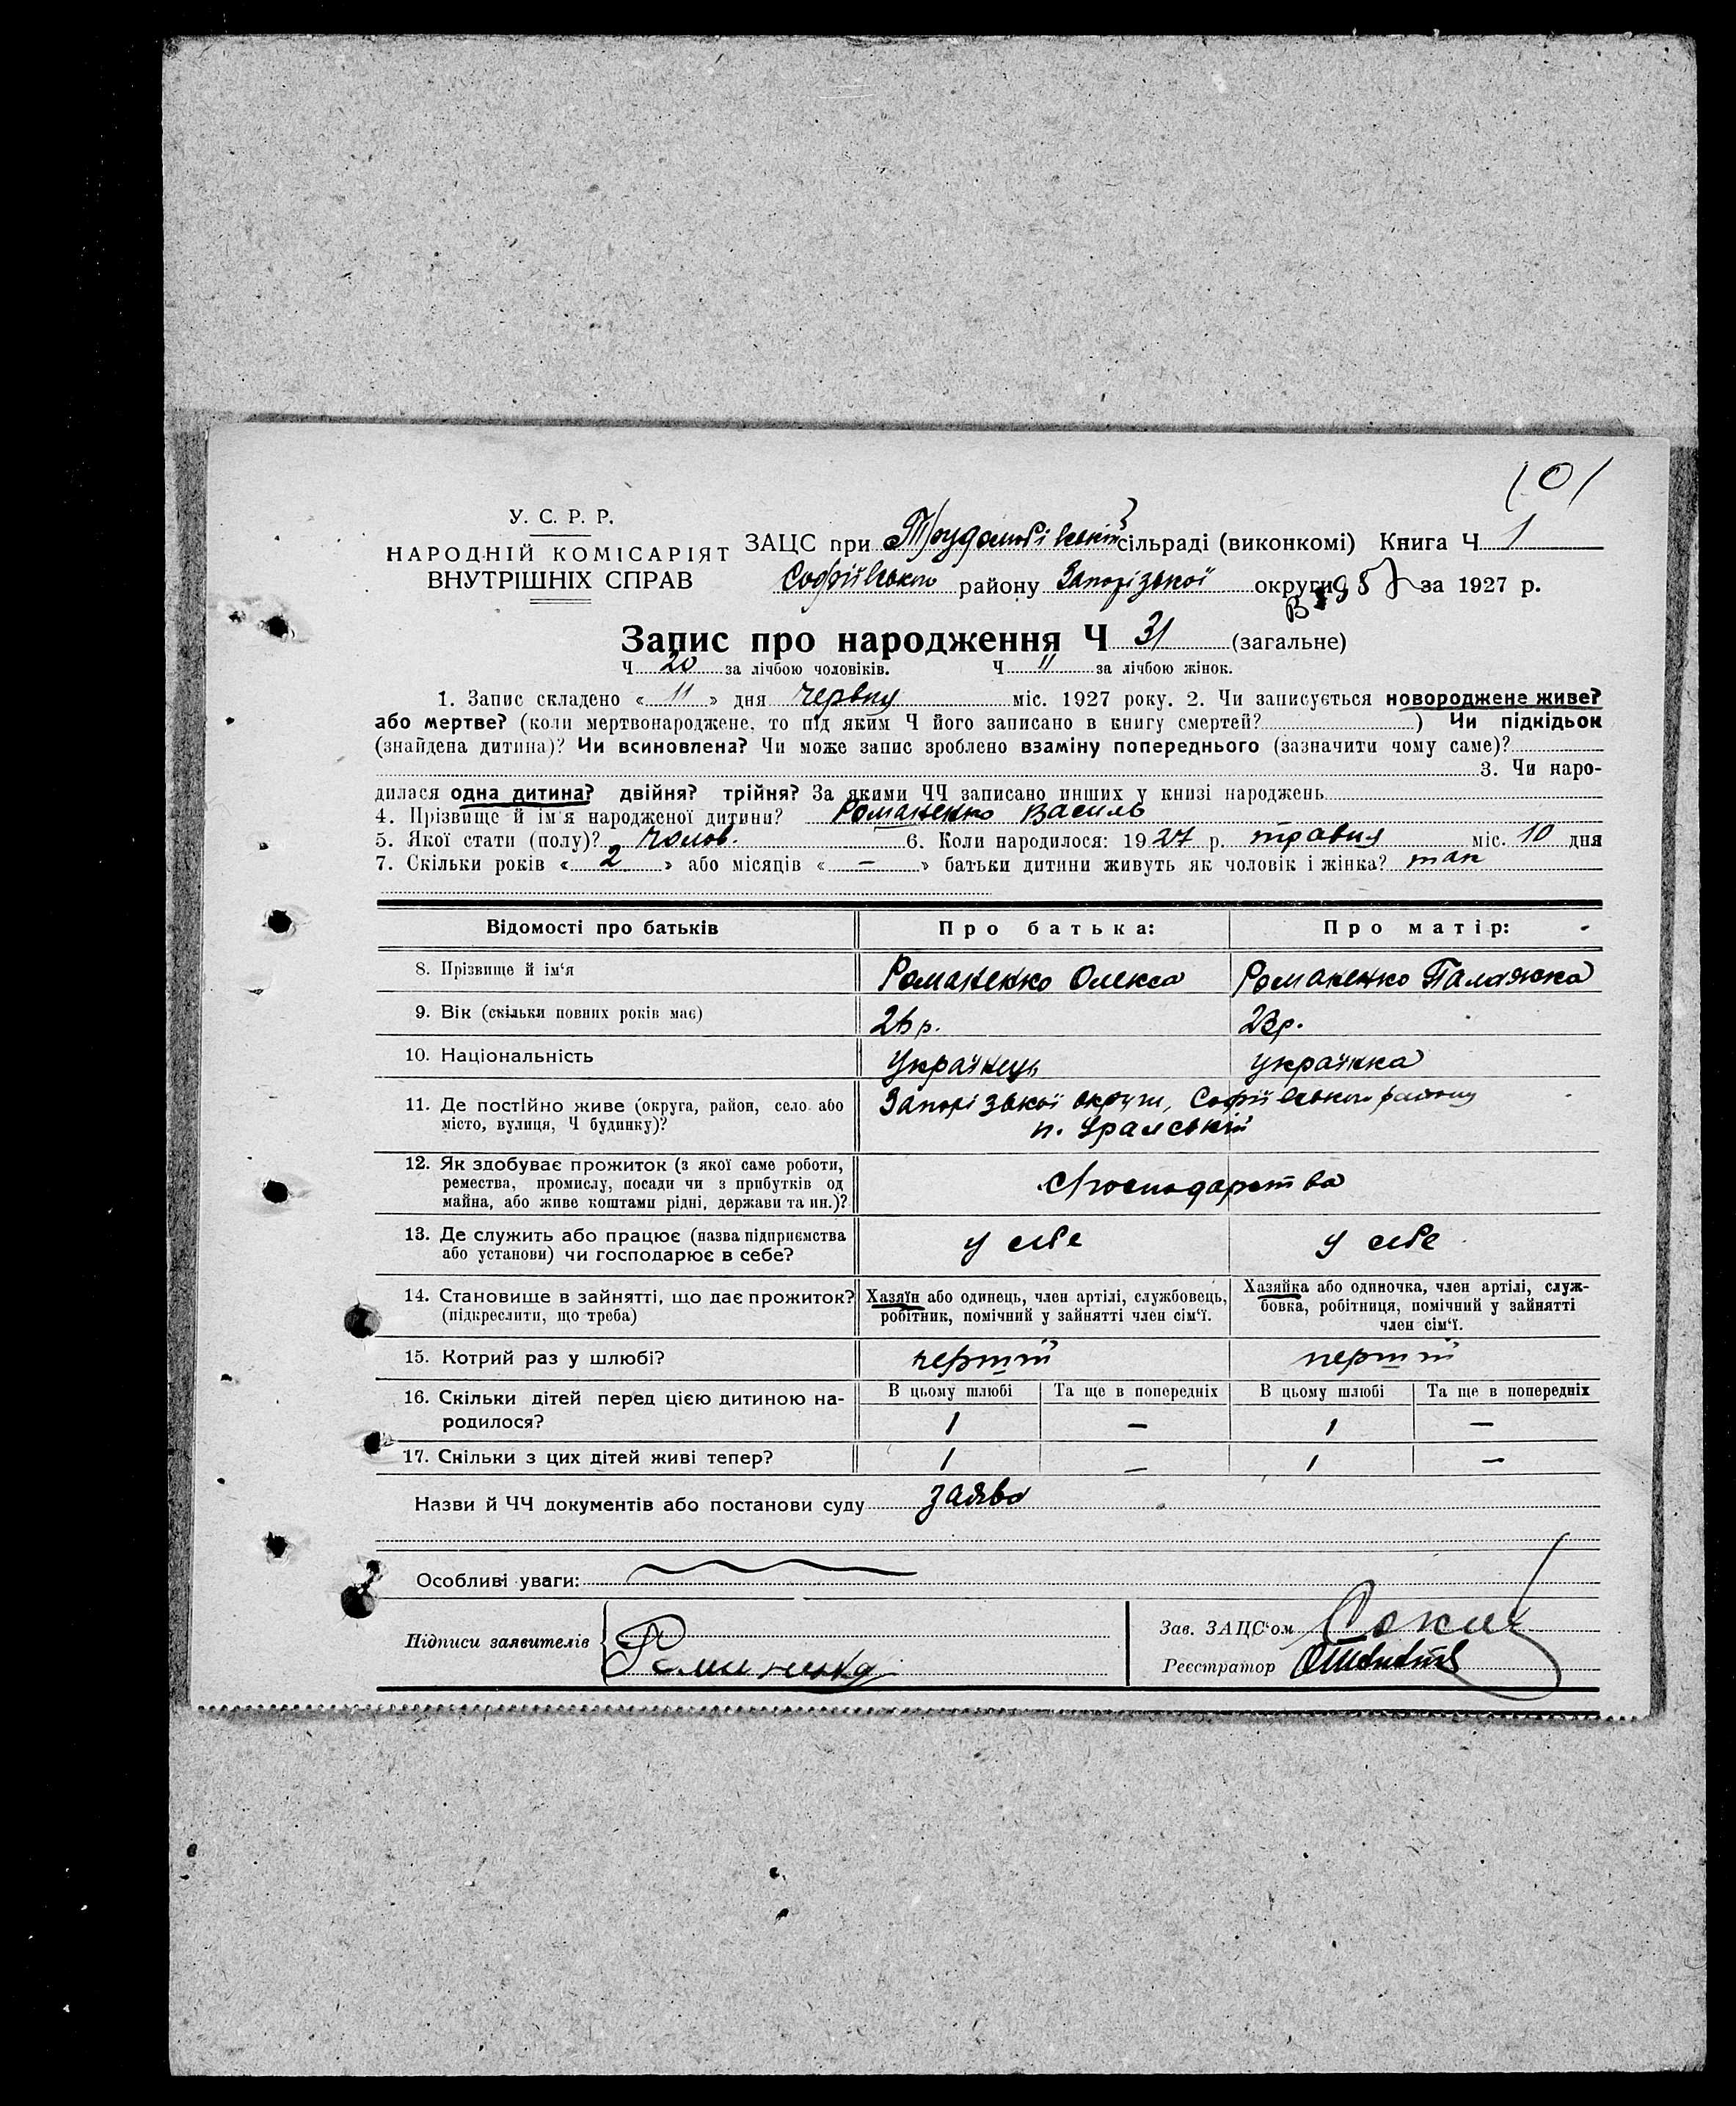 101
У. С. Р. Р.
НАРОДНІЙ КОМІСАРІЯТ
ВНУТРІШНІХ СПРАВ
ЗАЦС при Трудолюбівській сільраді (виконкомі) Книга Ч 1
Софіївського району Запорізької округи за 1927 р.
Запис про народження Ч 31 (загальне)
Ч 20 за лічбою чоловіків. Ч 11 за лічбою жінок.
1. Запис складено « 11 » дня червня міс. 1927 року. 2. Чи записується новороджене живе?
або мертве? (коли мертвонароджене, то під яким Ч його записано в книгу смертей? ) Чи підкідьок
(знайдена дитина)? Чи всиновлена? Чи може запис зроблено взаміну попереднього (зазначити чому саме)?
3. Чи наро-
дилася одна дитина? двійня? трійня? За якими ЧЧ записано инших у книзі народжень
4. Прізвище й ім'я народженої дитини? Романенко Василь
5. Якої стати (полу)? чолов. 6. Коли народилося: 1927 р. травня міс. 10 дня
7. Скільки років « 2 » або місяців « — » батьки дитини живуть як чоловік і жінка? так
Відомості про батьків Про батька: Про матір:
8. Прізвище й ім'я Романенко Олекса Романенко Палажка
9. Вік (скільки повних років має) 26 р. 23 р.
10. Національність Українець Українка
11. Де постійно живе (округа, район, село або Запорізької округи, Софіївського району
місто, вулиця, Ч будинку)? п. Уральський
12. Як здобуває прожиток (з якої саме роботи,
ремества, промислу, посади чи з прибутків од Господарства
майна, або живе коштами рідні, держави та ин.)?
13. Де служить або працює (назва підприємства у себе у себе
або установи) чи господарює в себе?
14. Становище в зайнятті, що дає прожиток? Хазяїн або одинець, член артілі, службовець, Хазяйка або одиночка, член артілі, служ-
(підкреслити, що треба) робітник, помічний у зайнятті член сім'ї. бовка, робітниця, помічний у зайнятті
член сім'ї.
15. Котрий раз у шлюбі? перший перший
16. Скільки дітей перед цією дитиною на- В цьому шлюбі Та ще в попередніх В цьому шлюбі Та ще в попередніх
родилося? 1 — 1 —
17. Скільки з цих дітей живі тепер? 1 — 1 —
Назви й ЧЧ документів або постанови суду заява
Особливі уваги:
Підписи заявителів Зав. ЗАЦС'ом
Реєстратор